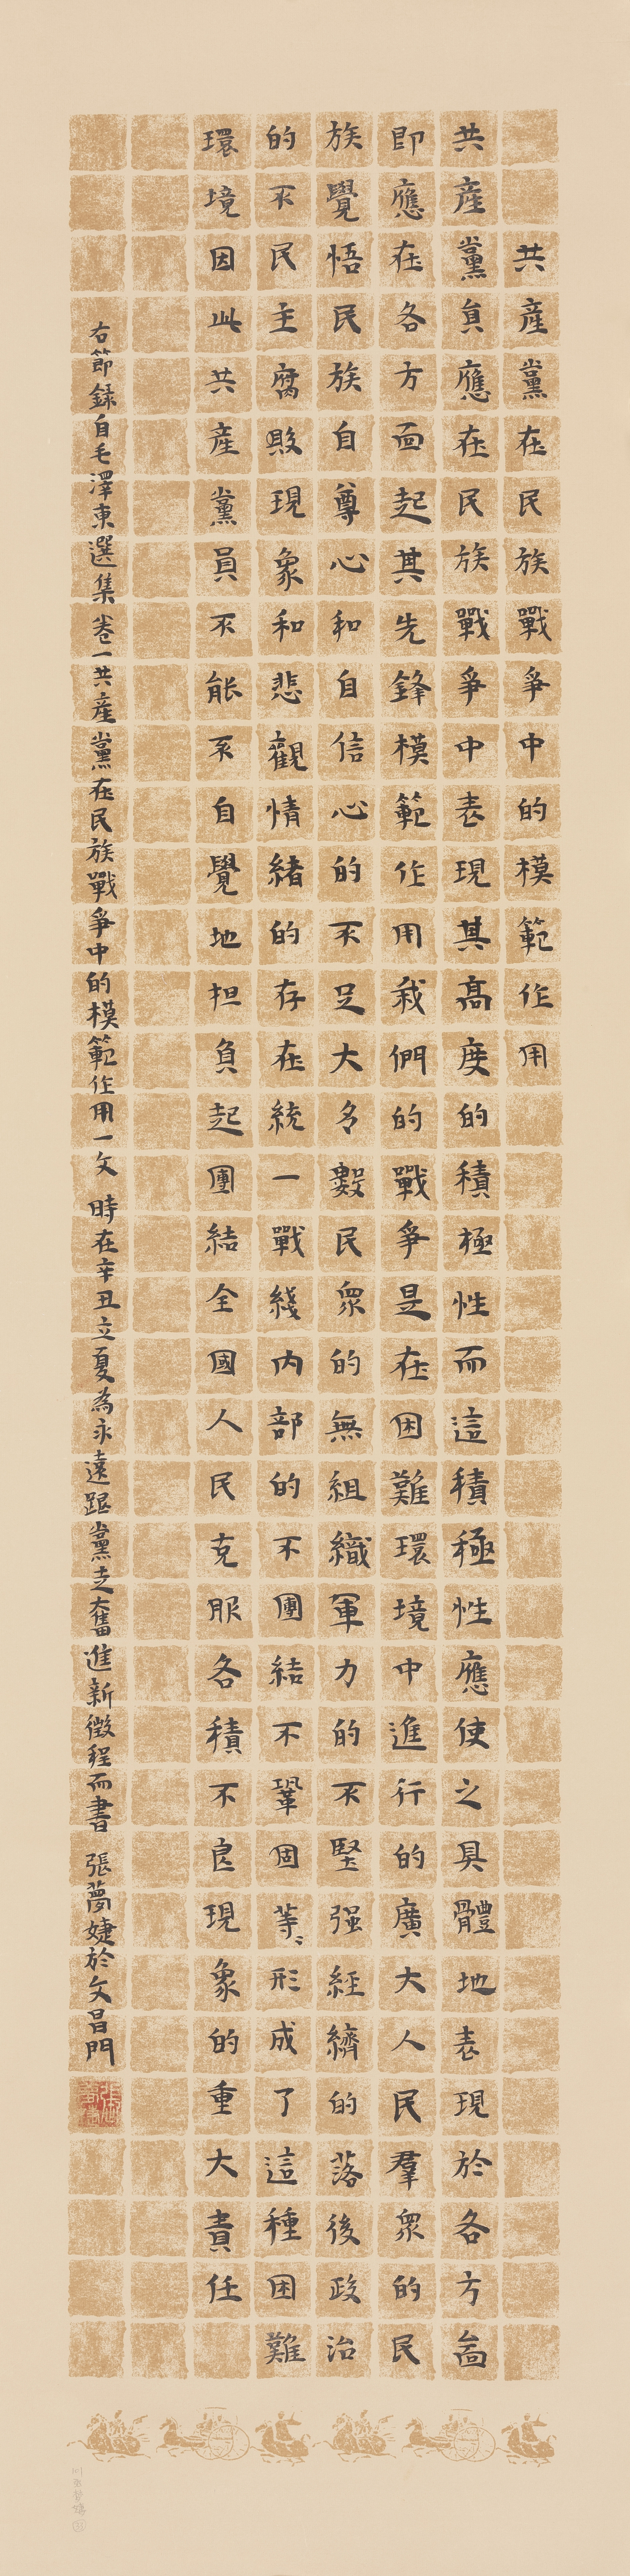 共產黨在民族戰爭中的模範作用
共產黨員應在民族戰爭中表現其高度的積極性而這積極性應使之具體地表現於各方面
即應在各方面起其先鋒模範作用我們的戰爭是在困難環境中進行的廣大人民羣眾的民
族覺悟民族自尊心和自信心的不足大多數民眾的無組織軍力的不堅强經濟的落後政治
的不民主腐敗現象和悲觀情緒的存在統一戰綫内部的不團結不鞏固等〻形成了這種困難
環境因此共產黨員不能不自覺地担負起團結全國人民克服各積不良現象的重大責任
右節錄自毛澤東選集卷一共產黨在民族戰爭中的模範作用一文 時在辛丑立夏為永遠跟黨走奮進新徵程而書 張夢婕於文昌門